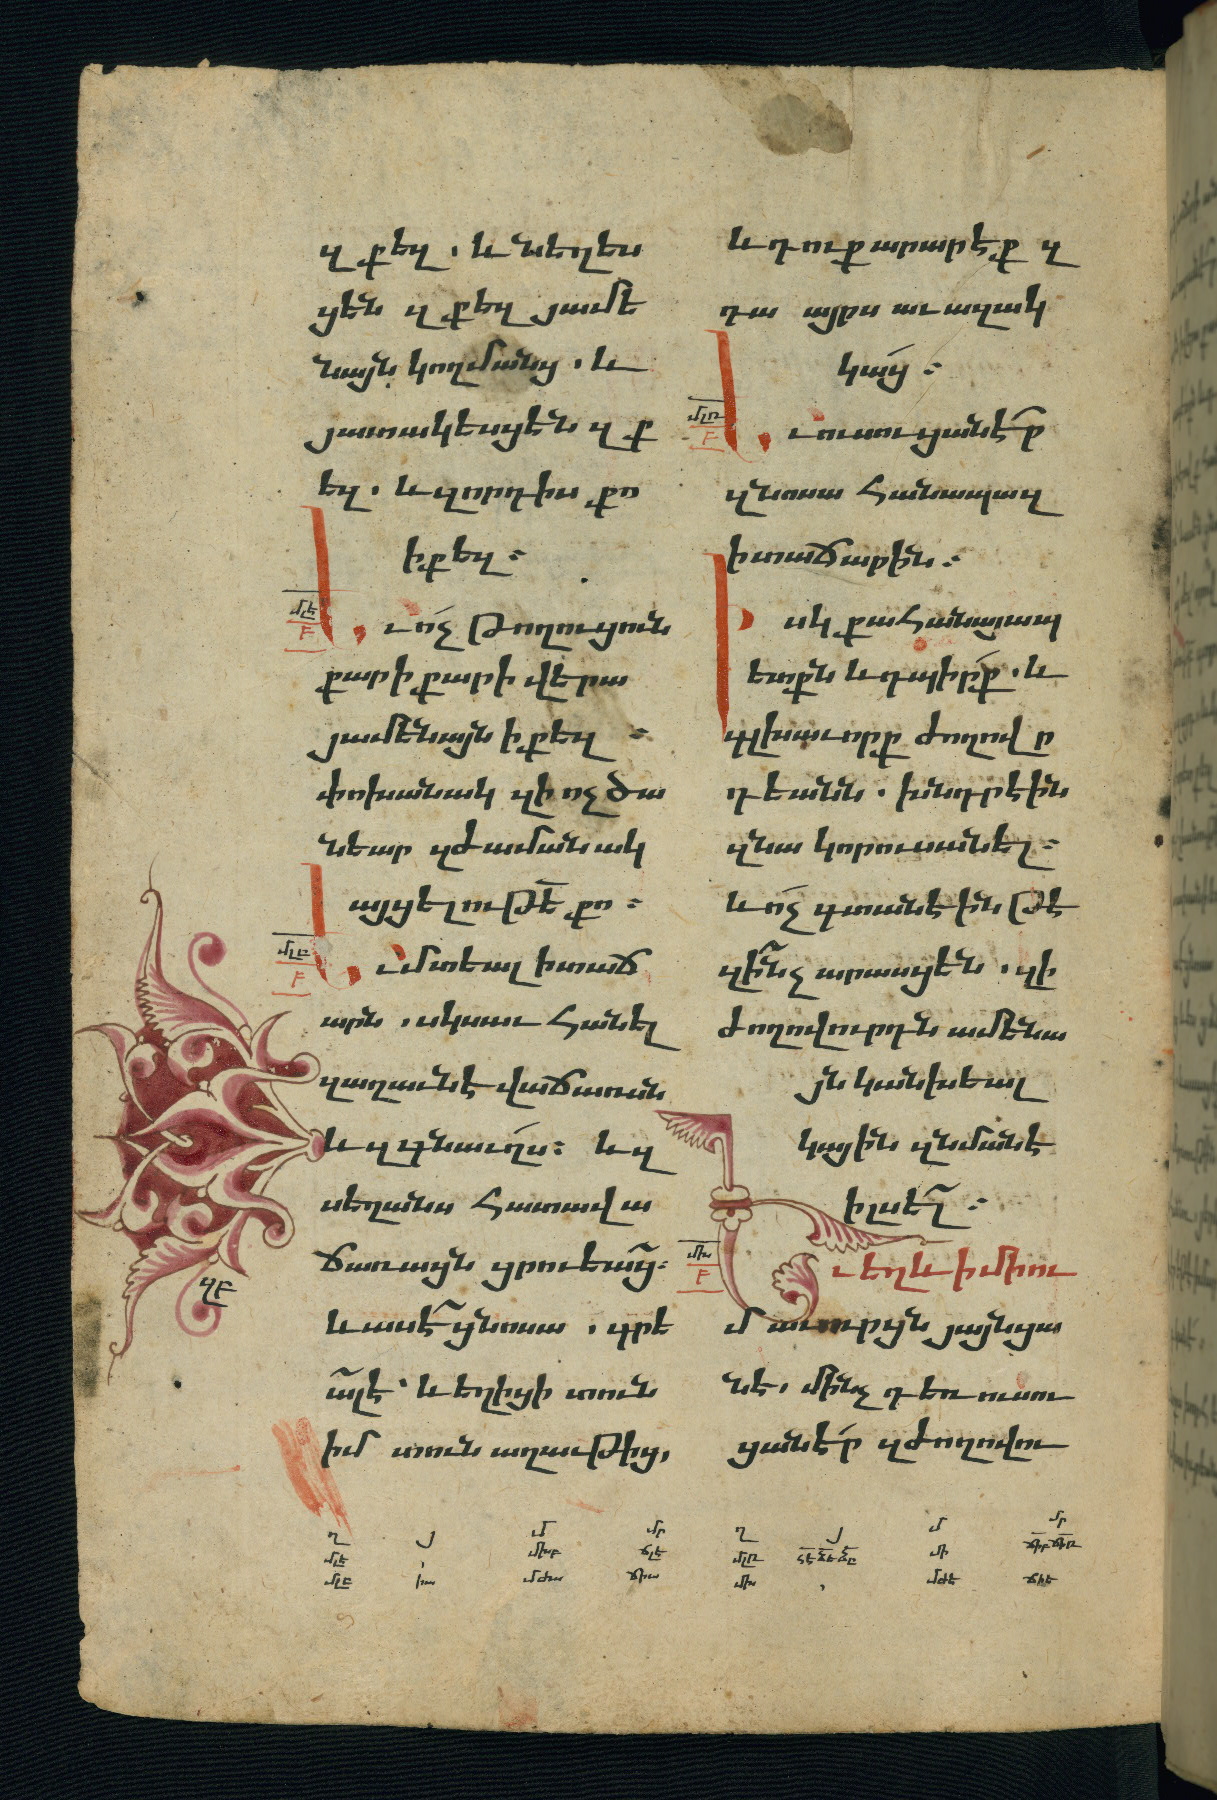 զքեզ . և նեղես
ցեն զքեզ յամե
նայն կողմանց . և
յատակեսցեն զք
եզ . և զորդիս քո
ի քեզ :
Եւ ոչ թողուցուն
քար ի քարի վերա
յամենայն ի քեզ :
փոխանակ զի ոչ ծա
նեար զժամանակ
այցելութե քո :
Եւ մտեալ ի տաճ
արն . սկսաւ հանել
զաղաւնէվաճառսն
և զգնաւղս : և զ
սեղանս հատավա
ճառացն ցրուեաց :
և ասէ ցնոսա . գրե
ալ է . և եղիցի տուն
իմ տուն աղաւթից,
և դուք արարէք զ
դա այրս աւազակ
կաց :
Եւ ուսուցանէր
զնոսա հանապազ
ի տաճարին :
Իսկ քահանայապ
ետքն և դպիրք . և
գլխաւորք ժողովր
դեանն . խնդրէին
զնա կորուսանել :
և ոչ գտանէին թէ
զինչ արասցեն . զի
ժողովուրդն ամենա
յն կախեալ
կային զնմանէ
ի լսել :
Եւ եղև ի միու
մ աւուրցն յայնցա
նե . մինչդեռ ուսու
ցանէր զժողովու